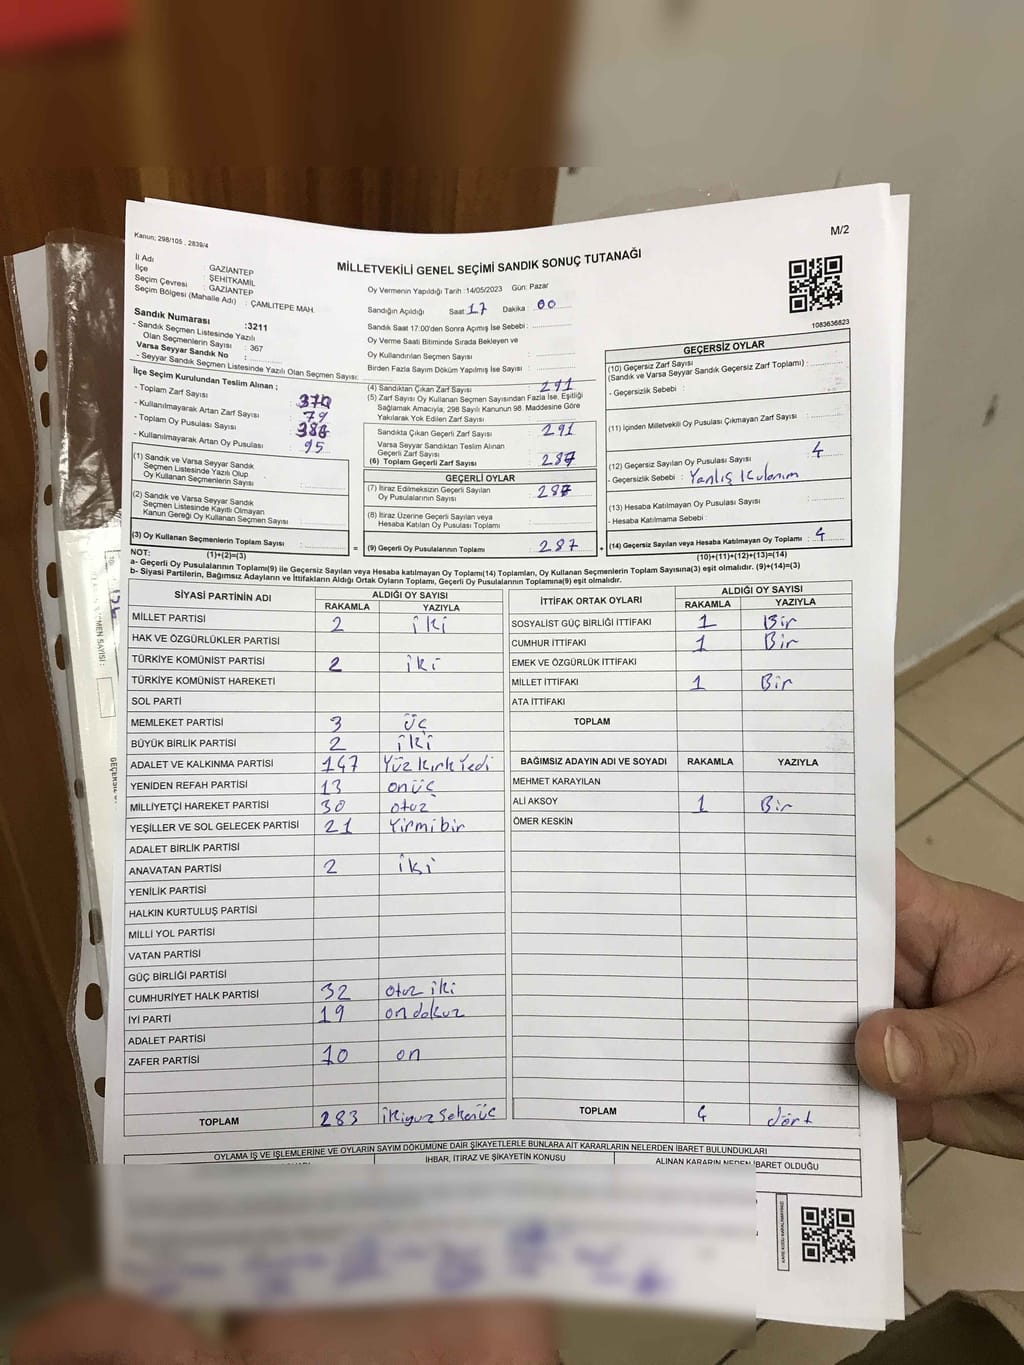 M/2
Kanun; 298/105 , 2839/4
MİLLETVEKİLİ GENEL SEÇİMİ SANDIK SONUÇ TUTANAĞI
İl Adı : GAZIANTEP
İlçe : ŞEHİTKAMİL
Seçim Çevresi : GAZIANTEP
Seçim Bölgesi (Mahalle Adı) : ÇAMLITEPE MAH.
Sandık Numarası :3211
- Sandık Seçmen Listesinde Yazılı
Olan Seçmenlerin Sayısı : 367
Varsa Seyyar Sandık No :
- Seyyar Sandık Seçmen Listesinde Yazılı Olan Seçmen Sayısı:
İlçe Seçim Kurulundan Teslim Alınan ;
- Toplam Zarf Sayısı : 370
- Kullanılmayarak Artan Zarf Sayısı : 79
- Toplam Oy Pusulası Sayısı :
- Kullanılmayarak Artan Oy Pusulası : 95
(1) Sandık ve Varsa Seyyar Sandık
Seçmen Listesinde Yazılı Olup
Oy Kullanan Seçmenlerin Sayısı :
(2) Sandık ve Varsa Seyyar Sandık
Seçmen Listesinde Kayıtlı Olmayan
Kanun Gereği Oy Kullanan Seçmen Sayısı :
(3) Oy Kullanan Seçmenlerin Toplam Sayısı :
Oy Vermenin Yapıldığı Tarih :14/05/2023 Gün: Pazar
Sandığın Açıldığı Saat : 17 Dakika : 00
Sandık Saat 17:00'den Sonra Açımış İse Sebebi :
Oy Verme Saati Bitiminde Sırada Bekleyen ve
Oy Kullandırılan Seçmen Sayısı :
Birden Fazla Sayım Döküm Yapılmış İse Sayısı :
(4) Sandıktan Çıkan Zarf Sayısı : 291
(5) Zarf Sayısı Oy Kullanan Seçmen Sayısından Fazla İse, Eşitliği
Sağlamak Amacıyla; 298 Sayılı Kanunun 98. Maddesine Göre
Yakılarak Yok Edilen Zarf Sayısı :
Sandıkta Çıkan Geçerli Zarf Sayısı : 291
Varsa Seyyar Sandıktan Teslim Alınan
Geçerli Zarf Sayısı :
(6) Toplam Geçerli Zarf Sayısı : 287
GEÇERLİ OYLAR
(7) İtiraz Edilmeksizin Geçerli Sayılan
Oy Pusulalarının Sayısı : 287
(8) İtiraz Üzerine Geçerli Sayılan veya
Hesaba Katılan Oy Pusulası Toplamı :
= (9) Geçerli Oy Pusulalarının Toplamı : 287 +
1083636823
GEÇERSİZ OYLAR
(10) Geçersiz Zarf Sayısı
(Sandık ve Varsa Seyyar Sandık Geçersiz Zarf Toplamı) :
- Geçersizlik Sebebi :
(11) İçinden Milletvekili Oy Pusulası Çıkmayan Zarf Sayısı :
(12) Geçersiz Sayılan Oy Pusulası Sayısı : 4
- Geçersizlik Sebebi : Yanlış Kulanım
(13) Hesaba Katılmayan Oy Pusulası Sayısı :
- Hesaba Katılmama Sebebi :
(14) Geçersiz Sayılan veya Hesaba Katılmayan Oy Toplamı : 4
NOT: (1)+(2)=(3) (10)+(11)+(12)+(13)=(14)
a- Geçerli Oy Pusulalarının Toplamı(9) ile Geçersiz Sayılan veya Hesaba katılmayan Oy Toplamı(14) Toplamları, Oy Kullanan Seçmenlerin Toplam Sayısına(3) eşit olmalıdır. (9)+(14)=(3)
b- Siyasi Partilerin, Bağımsız Adayların ve İttifakların Aldığı Ortak Oyların Toplamı, Geçerli Oy Pusulalarının Toplamına(9) eşit olmalıdır.
SİYASİ PARTİNİN ADI ALDIĞI OY SAYISI
RAKAMLA YAZIYLA
MİLLET PARTİSİ 2 iki
HAK VE ÖZGÜRLÜKLER PARTİSİ
TÜRKİYE KOMÜNİST PARTİSİ 2 iki
TÜRKİYE KOMÜNİST HAREKETİ
SOL PARTİ
MEMLEKET PARTİSİ 3 üç
BÜYÜK BİRLİK PARTİSİ 2 iki
ADALET VE KALKINMA PARTİSİ 147 Yüz kırk Yedi
YENİDEN REFAH PARTİSİ 13 onüç
MİLLİYETÇİ HAREKET PARTİSİ 30 otuz
YEŞİLLER VE SOL GELECEK PARTİSİ 21 Yirmibir
ADALET BİRLİK PARTİSİ
ANAVATAN PARTİSİ 2 iki
YENİLİK PARTİSİ
HALKIN KURTULUŞ PARTİSİ
MİLLİ YOL PARTİSİ
VATAN PARTİSİ
GÜÇ BİRLİĞİ PARTİSİ
CUMHURİYET HALK PARTİSİ 32 otuz iki
İYİ PARTİ 19 on dokuz
ADALET PARTİSİ
ZAFER PARTİSİ 10 on
TOPLAM 283 ikiyuz seksnüç
İTTİFAK ORTAK OYLARI ALDIĞI OY SAYISI
RAKAMLA YAZIYLA
SOSYALİST GÜÇ BİRLİĞİ İTTİFAKI 1 Bir
CUMHUR İTTİFAKI 1 Bir
EMEK VE ÖZGÜRLÜK İTTİFAKI
MİLLET İTTİFAKI 1 Bir
ATA İTTİFAKI
TOPLAM
BAĞIMSIZ ADAYIN ADI VE SOYADI RAKAMLA YAZIYLA
MEHMET KARAYILAN
ALİ AKSOY 1 Bir
ÖMER KESKİN
TOPLAM 4 dört
OYLAMA İŞ VE İŞLEMLERİNE VE OYLARIN SAYIM DÖKÜMÜNE DAİR ŞİKAYETLERLE BUNLARA AİT KARARLARIN NELERDEN İBARET BULUNDUKLARI
İHBAR, İTİRAZ VE ŞİKAYETİN KONUSU ALINAN KARARIN NEDEN İBARET OLDUĞU